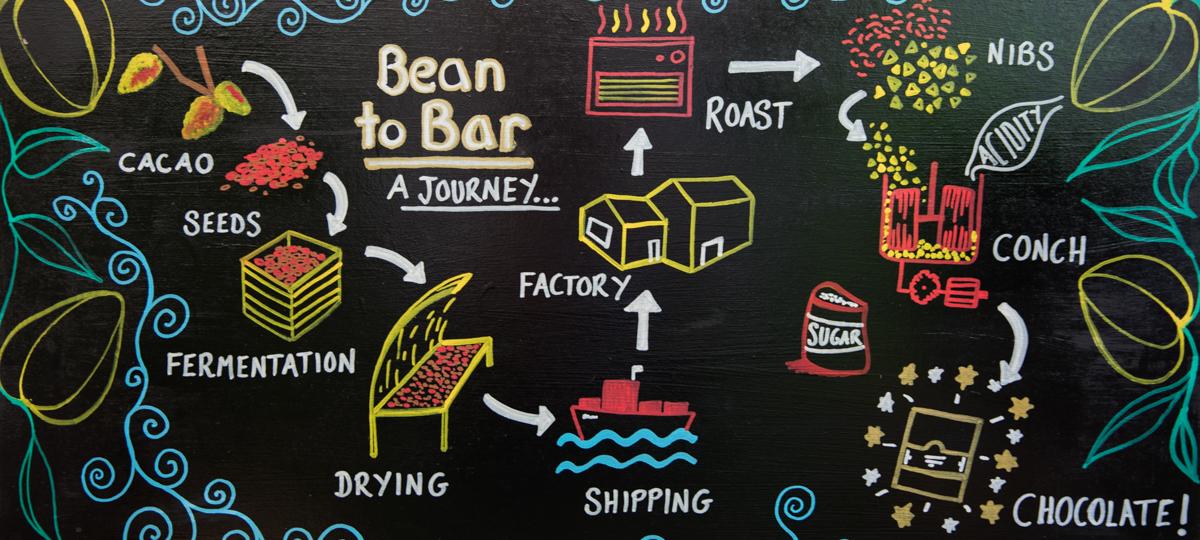 Bean
to Bar
A JOURNEY...
CACAO
SEEDS
FERMENTATION
DRYING
SHIPPING
FACTORY
ROAST
NIBS
ACIDITY
CONCH
SUGAR
CHOCOLATE!